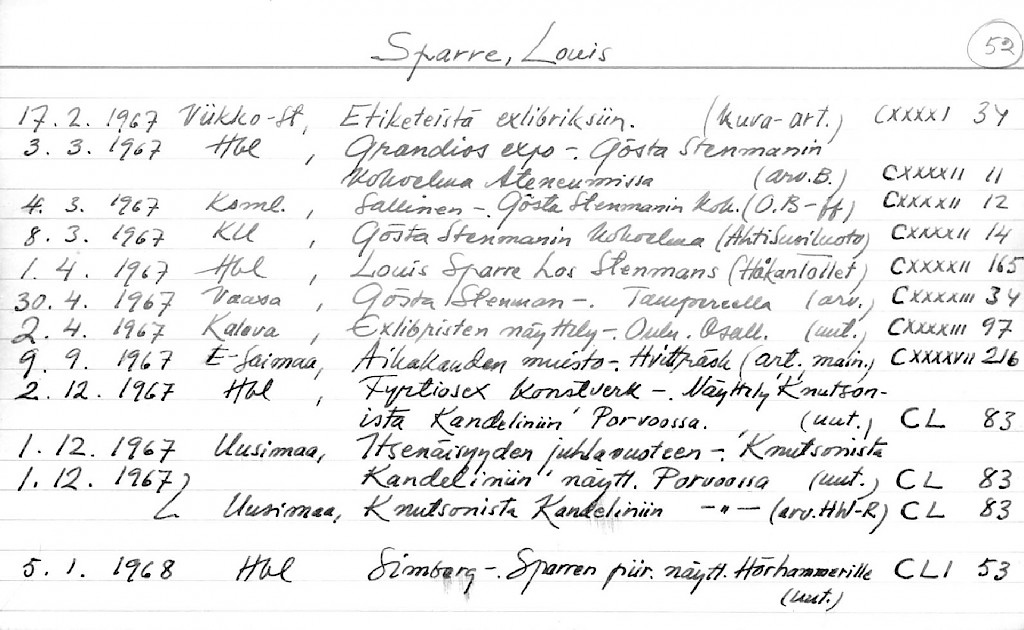 Sparre, Louis 52
17. 2. 1967 Viikko-St, Etiketeistä exlibriksiin. (kuva-art.) CXXXXI 34
3. 3. 1967 Hbl , Grandios expo -. Gösta Stenmanin
kokoelma Ateneumissa (arv.B.) CXXXXII 11
4. 3. 1967 Koml. , Sallinen -. Gösta Stenmanin kok. (O.B-ff) CXXXXII 12
8. 3. 1967 KU , Gösta Stenmanin kokoelma (Ahti Susiluoto) CXXXXII 14
1. 4. 1967 Hbl , Louis Sparre hos Stenmans (Håkan Tollet) CXXXXII 165
30. 4. 1967 Vaasa , Gösta Stenman -. Tampereella (arv.) CXXXXIII 34
2. 4. 1967 Kaleva , Exlibristen näyttely -. Oulu. Osall. (uut.) CXXXXIII 97
9. 9. 1967 E-Saimaa, Aikakauden muisto -. Hvitträsk (art. main.) CXXXXVII 216
2. 12. 1967 Hbl , Fyrtiosex konstverk -. Näyttely 'Knutson-
ista Kandeliniin' Porvoossa. (uut.) CL 83
1. 12. 1967 Uusimaa, Itsenäisyyden juhlavuoteen -. 'Knutsonista
1. 12. 1967 Kandeliniin' näytt. Porvoossa (uut.) CL 83
Uusimaa, Knutsonista Kandeliniin -"- (arv.HW-R) CL 83
5. 1. 1968 Hbl Simberg -. Sparren piir. näytt. Hörhammerille CLI 53
(uut.)